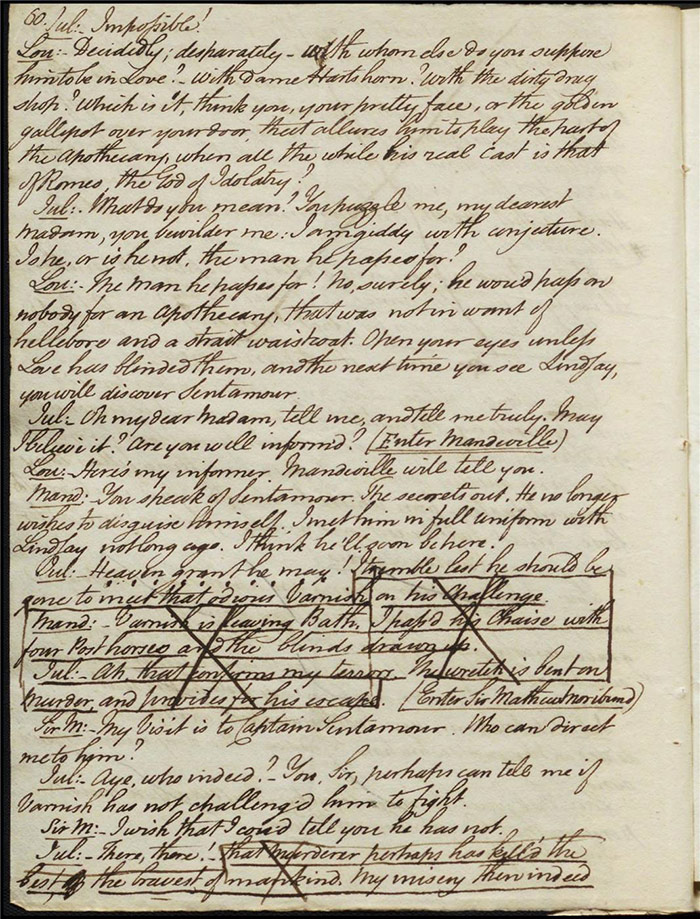 60. Jul:- Impossible!
Lou:- Decidedly; desparately - with whom else do you suppose
him to be in Love? - with Dame Hartshorn? With the dirty drug
shop? Which is it, think you, your pretty face, or the golden
gallipot over your door, that allures him to play the part of
the Apothecary, when all the while his real cast is that
of Romeo, the God of Idolatry?
Jul:- What do you mean? You puzzle me, my dearest
madam, you bewilder me: I am giddy with conjecture.
Is he, or is he not, the man he passes for?
Lou:- The man he passes for! No, surely; he would pass on
nobody for an Apothecary, that was not in want of
hellebore and a strait waistcoat. Open your eyes unless
Love has blinded them, and the next time you see Lindsay,
you will discover Sentamour.
Jul:- Oh my dear Madam, tell me, and tell me truly. May
I believe it? Are you well inform'd? (Enter Mandeville)
Lou:- Here's my informer. Mandeville will tell you.
Mand:- You speak of Sentamour. The secret's out. He no longer
wishes to disguise himself. I met him in full uniform with
Lindsay not long ago. I think he'll soon be here.
Jul:- Heaven grant he may! I tremble lest he should be
gone to meet that odious Varnish on his Challenge.
Mand:- Varnish is leaving Bath. I pass'd his Chaise with
four Post horses and the blinds drawn up.
Jul:- Ah, that confirms my terrors. The wretch is bent on
murder, and provides for his escape. (Enter Sir Mathew Moribund)
Sir M:- My Visit is to Captain Sentamour. Who can direct
me to him?
Jul:- Aye, who indeed? - You, Sir, perhaps can tell me if
Varnish has not challeng'd him to fight.
Sir M:- I wish that I cou'd tell you he has not.
Jul:- There, there! - that Murderer perhaps has kill'd the
best, the bravest of mankind. My misery then indeed